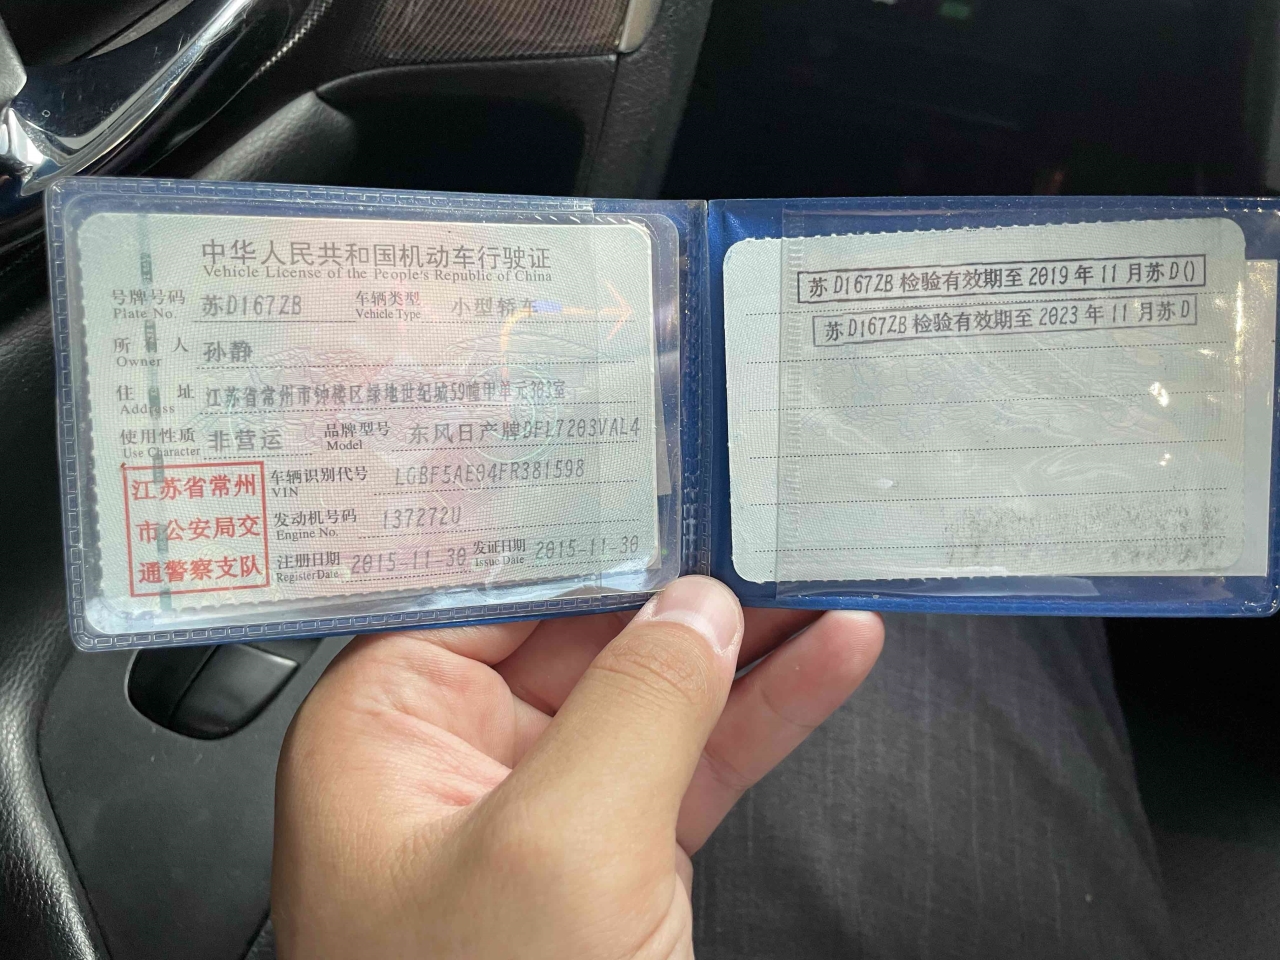 中华人民共和国机动车行驶证
Vehicle License of the People's Republic of China
号牌号码 苏D167ZB 车辆类型 小型轿车
Plate No. Vehicle Type
所有人 孙静
Owner
住址 江苏省常州市钟楼区绿地世纪城59幢甲单元303室
Address
使用性质 非营运 品牌型号 东风日产牌DFL7203VAL4
Use Character Model
江苏省常州
市公安局交
通警察支队
车辆识别代号 LGBF5AE04FR381598
VIN
发动机号码 137272U
Engine No.
注册日期 2015-11-30 发证日期 2015-11-30
Register Date Issue Date
苏D167ZB检验有效期至2019年11月苏D()
苏D167ZB检验有效期至2023年11月苏D